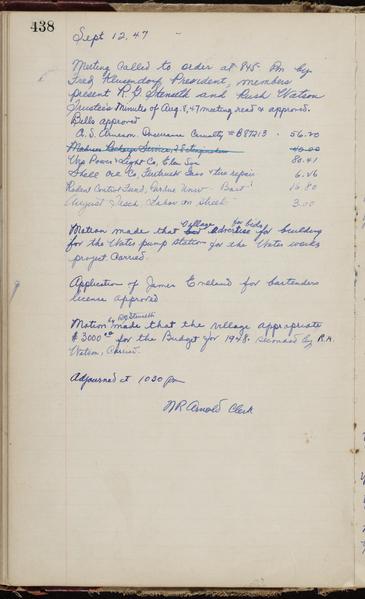 438
Sept 12, 47
Meeting Called to order at 845 Pm by
Fred Klusendorf, President, members
present R.G. Stenseth and Rush Watson
Trustees Minutes of Aug. 8, 47 meeting read & approved.
Bills approved
A.S. Arneson. Insurance Casualty #B87213 - 56.70
Madison Service, 2 Extinguishers 40.00
Wis Power & Light Co, Elec Ser 80.41
Shell Oil Co, Gas & tire repair 6.46
Rodent Control Fund, Purdue Univ - Bait 16.80
August Tesch, Labor on Street 3.00
Motion made that Village advertise for bids for building
for the Water pump station for the Water works
project Carried.
Application of James England for bartenders
license approved
Motion by RG Stenseth made that the village appropriate
$3000 00 for the Budget for 1948. seconded by R.A.
Watson, Carried.
Adjourned at 1030 pm
N R Arnold Clerk